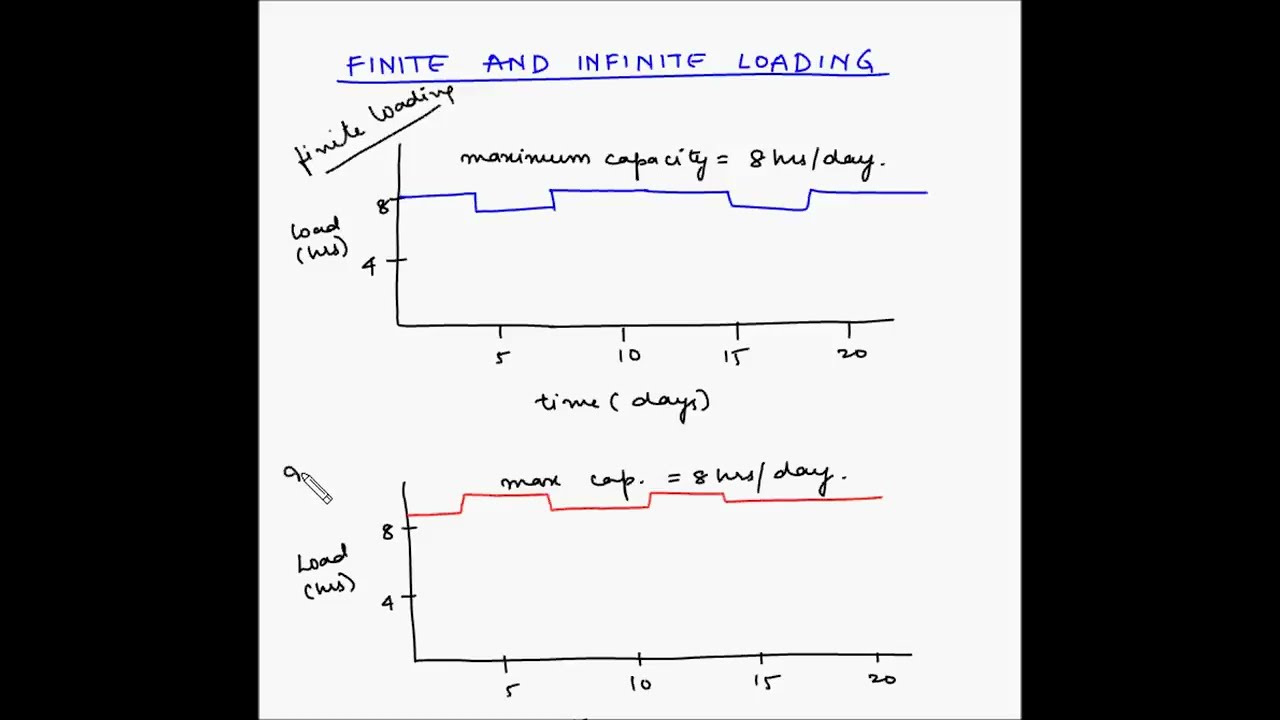 FINITE AND INFINITE LOADING
finite loading
maximum capacity = 8 hrs/day.
8
Load
(hrs)
4
5 10 15 20
time (days)
max cap. = 8 hrs/day.
8
Load
(hrs)
4
5 10 15 20